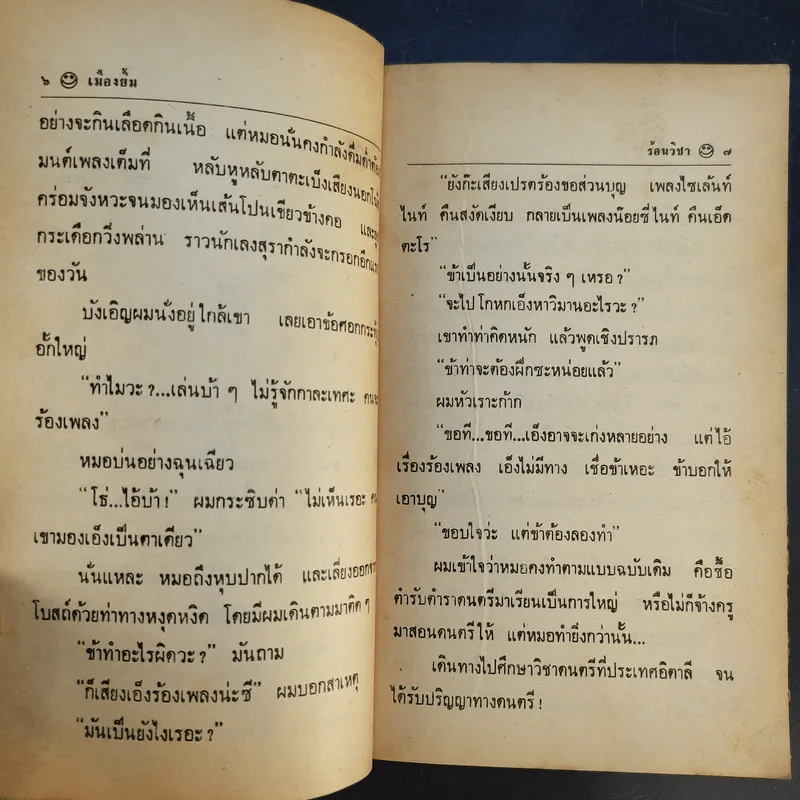 ๖ เมืองยิ้ม
อย่างจะกินเลือดกินเนื้อ แต่หมอนั่นคงกำลังดื่มด่ำ
มนต์เพลงเต็มที่ หลับหูหลับตาตะเบ็งเสียงนอก
คร่อมจังหวะจนมองเห็นเส้นโปนเขียวข้างคอ และ
กระเดือกวิ่งพล่าน ราวนักเลงสุรากำลังจะกรอกอึก
ของวัน
บังเอิญผมนั่งอยู่ใกล้เขา เลยเอาข้อศอกกระทุ้ง
อั้กใหญ่
“ทำไมวะ?...เล่นบ้า ๆ ไม่รู้จักกาละเทศะ
ร้องเพลง”
หมอบ่นอย่างฉุนเฉียว
“โธ่...ไอ้บ้า!” ผมกระซิบด่า “ไม่เห็นเรอะ
เขามองเอ็งเป็นตาเดียว”
นั่นแหละ หมอถึงหุบปากได้ และเลี่ยงออก
โบสถ์ด้วยท่าทางหงุดหงิด โดยมีผมเดินตามมาติด ๆ
“ข้าทำอะไรผิดวะ?” มันถาม
“ก็เสียงเอ็งร้องเพลงน่ะซี” ผมบอกสาเหตุ
“มันเป็นยังไงเรอะ?”
ร้อนวิชา ๗
“ยังก๊ะเสียงเปรตร้องขอส่วนบุญ เพลงไซเล้นท์
ไนท์ คืนสงัดเงียบ กลายเป็นเพลงน๊อยซี่ไนท์ คืนเอ็ด
ตะโร”
“ข้าเป็นอย่างนั้นจริง ๆ เหรอ?”
“จะไปโกหกเอ็งหาวิมานอะไรวะ?”
เขาทำท่าคิดหนัก แล้วพูดเชิงปรารภ
“ข้าท่าจะต้องฝึกซะหน่อยแล้ว”
ผมหัวเราะก้าก
“ขอที...ขอที...เอ็งอาจจะเก่งหลายอย่าง แต่ไอ้
เรื่องร้องเพลง เอ็งไม่มีทาง เชื่อข้าเหอะ ข้าบอกให้
เอาบุญ”
“ขอบใจว่ะ แต่ข้าต้องลองทำ”
ผมเข้าใจว่าหมอคงทำตามแบบฉบับเดิม คือซื้อ
ตำรับตำราดนตรีมาเรียนเป็นการใหญ่ หรือไม่ก็จ้างครู
มาสอนดนตรีให้ แต่หมอทำยิ่งกว่านั้น...
เดินทางไปศึกษาวิชาดนตรีที่ประเทศอิตาลี จน
ได้รับปริญญาทางดนตรี!